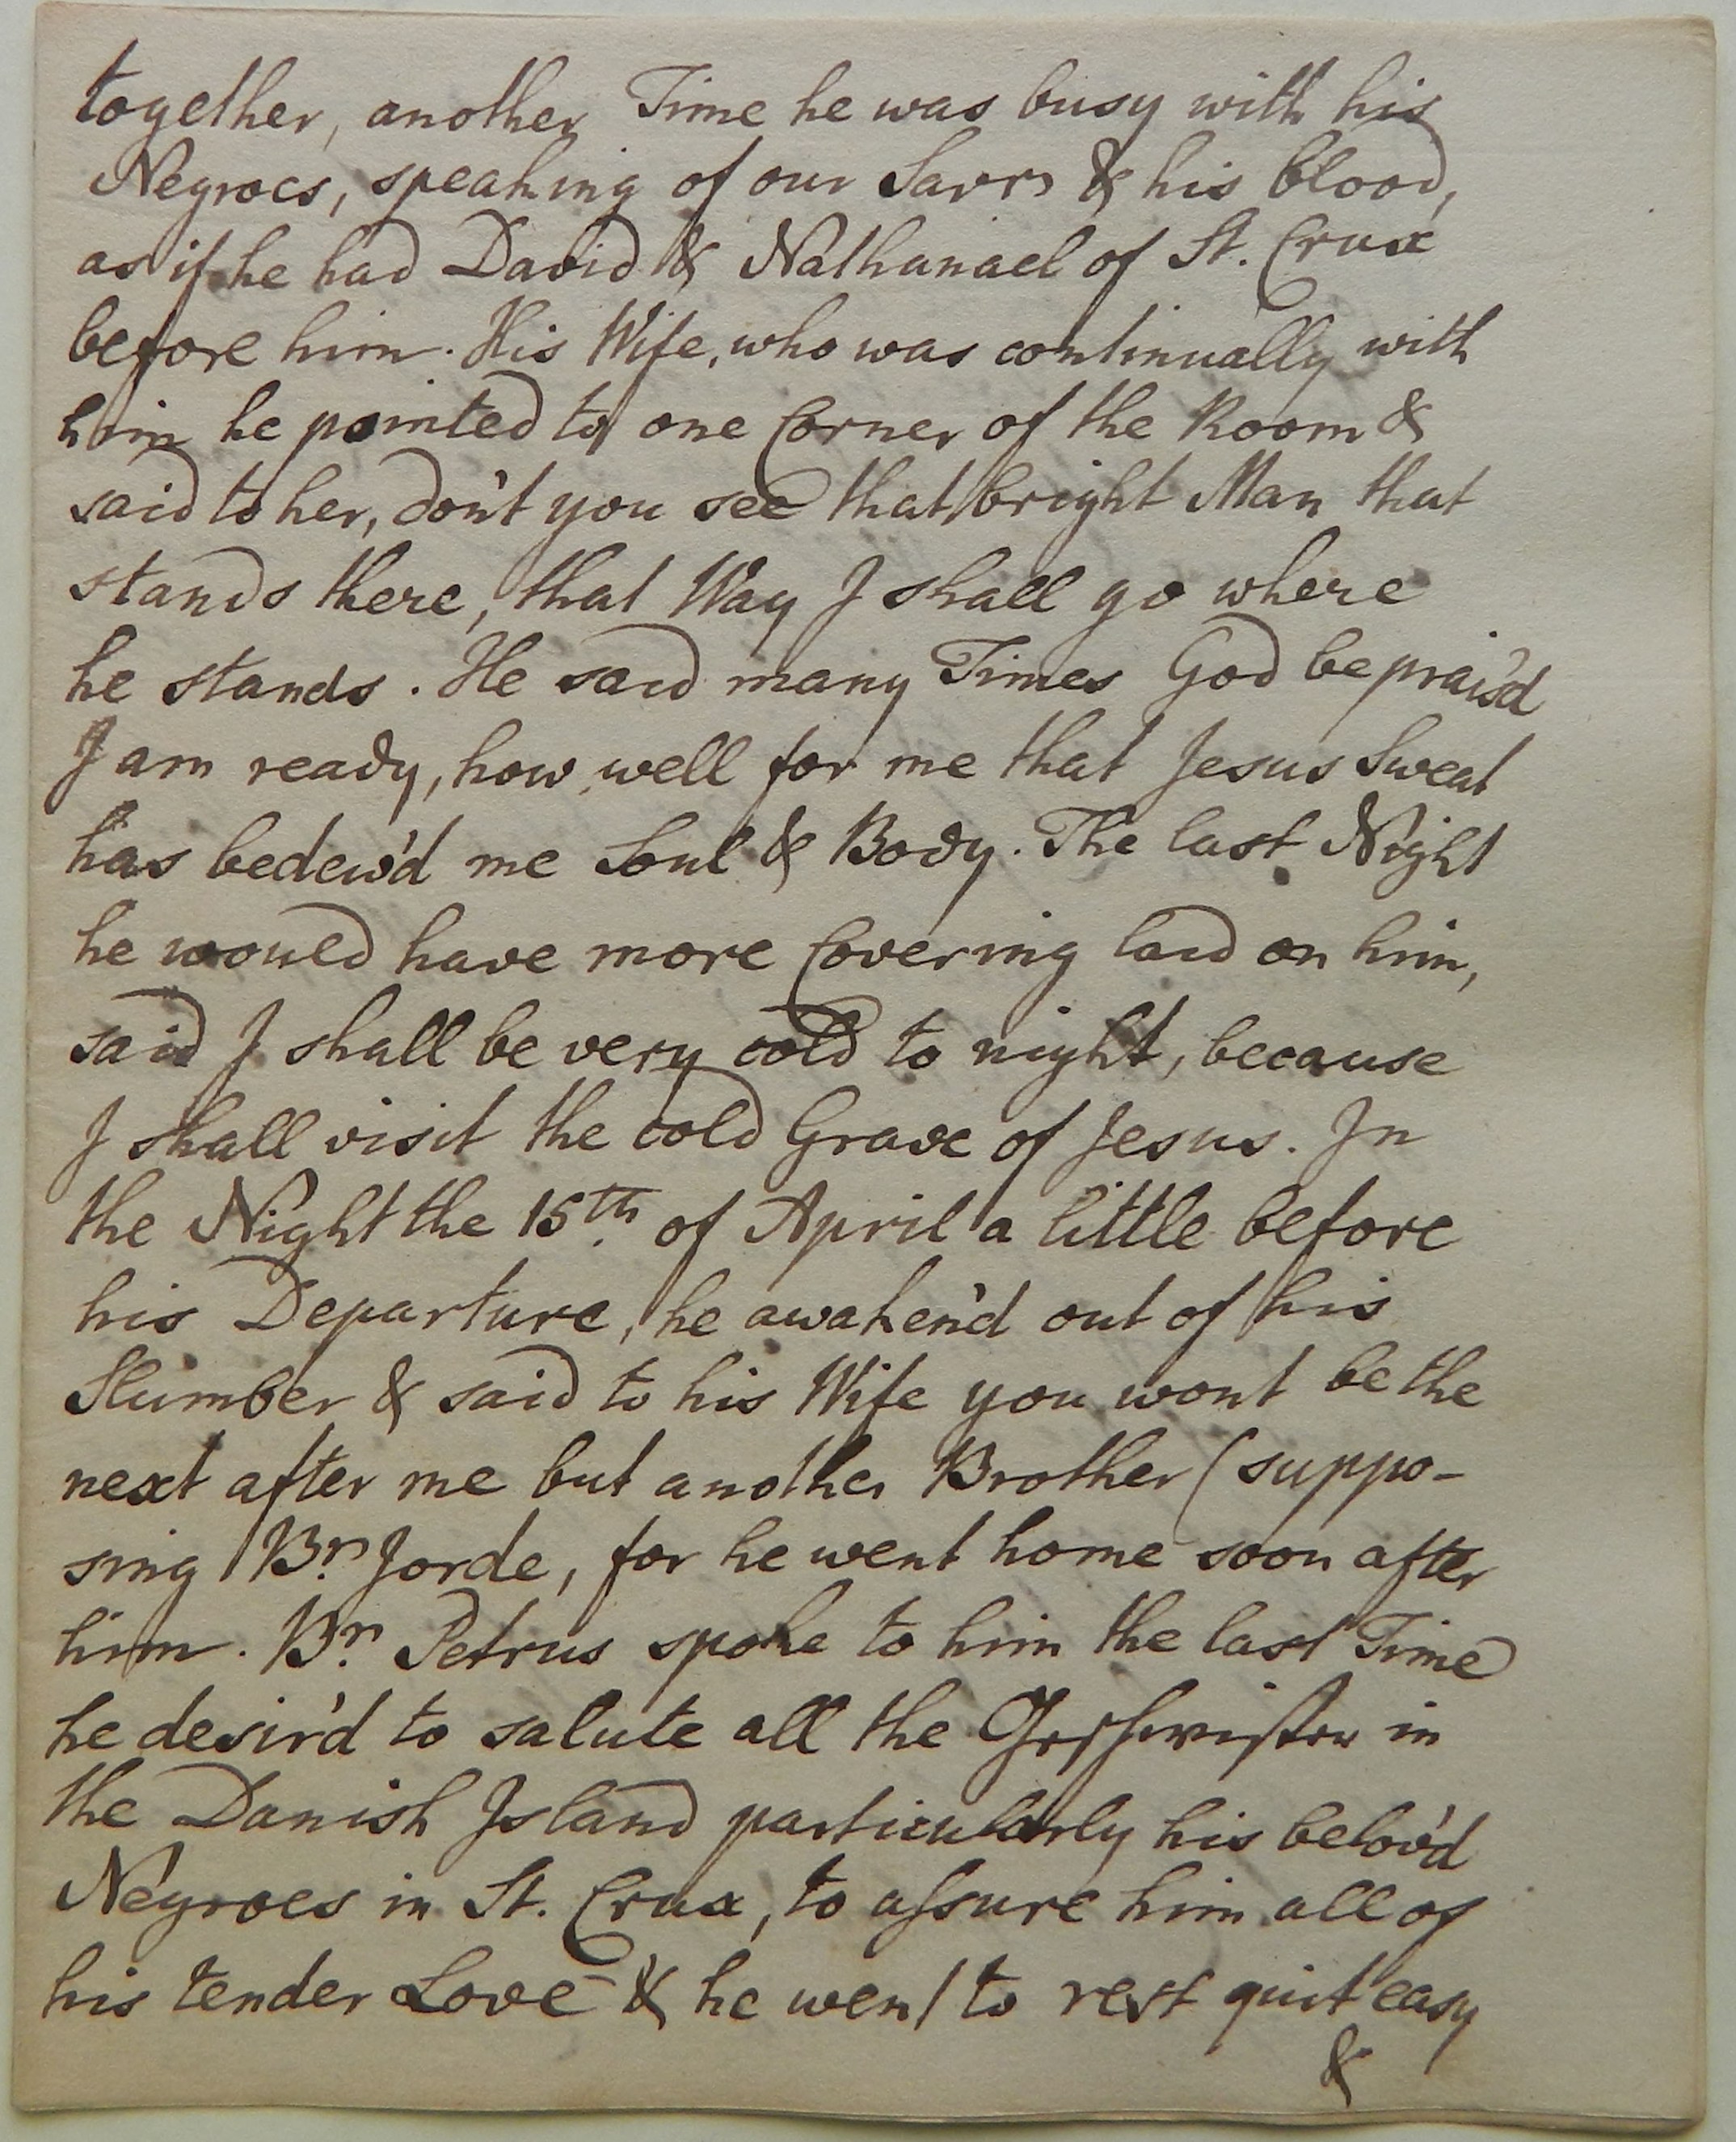 together, another Time he was busy with his
Negroes, speaking of our Savrs & his blood,
as if he had David & Nathanael of St. Crux
before him. His Wife, who was continually with
him he pointed to one Corner of the Room &
said to her, don't you see that bright Man that
stands there, that Way J shall go where
he stands. He said many Times God be prais'd
J am ready, how well for me that Jesus Sweat
has bedew'd me Soul & Body. The last Night
he would have more Covering laid on him,
said J shall be very cold to night, because
J shall visit the cold Grave of Jesus. Jn
the Night the 15th. of April a little before
his Departure, he awaken'd out of his
Slumber & said to his Wife you wont be the
next after me but another Brother (suppo-
sing Br. Jorde, for he went home soon after
him. Br. Petrus spoke to him the last Time
he desir'd to salute all the Geschwister in
the Danish Jsland particularly his belov'd
Negroes in St. Crux, to aſsure him all of
his tender Love & he went to rest quit easy
&